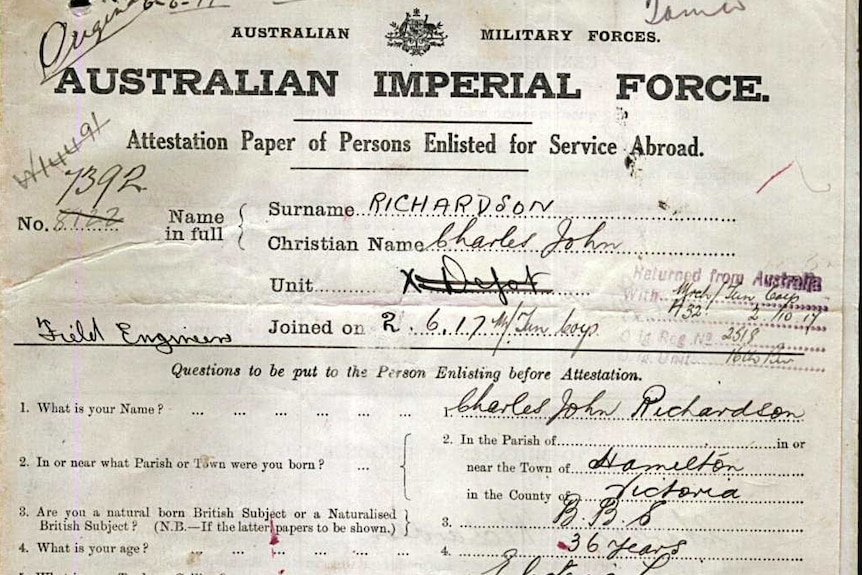 Original
AUSTRALIAN MILITARY FORCES.
AUSTRALIAN IMPERIAL FORCE.
Attestation Paper of Persons Enlisted for Service Abroad.
7392
No. 8122
Name in full
Surname RICHARDSON
Christian Name Charles John
Unit X Depot
Joined on 2.6.17 M/Tun Corp
Field Engineers
Returned from Australia
With
Orig Reg No 2318
Orig. Unit
Questions to be put to the Person Enlisting before Attestation.
1. What is your Name? ... ... ... ... ... ... Charles John Richardson
2. In or near what Parish or Town were you born? ...
2. In the Parish of in or
near the Town of Hamilton
in the County of Victoria
3. Are you a natural born British Subject or a Naturalised
British Subject? (N.B.—If the latter papers to be shown.)
3. B B S
4. What is your age? ... ... ... ... ... ...
4. 36 years